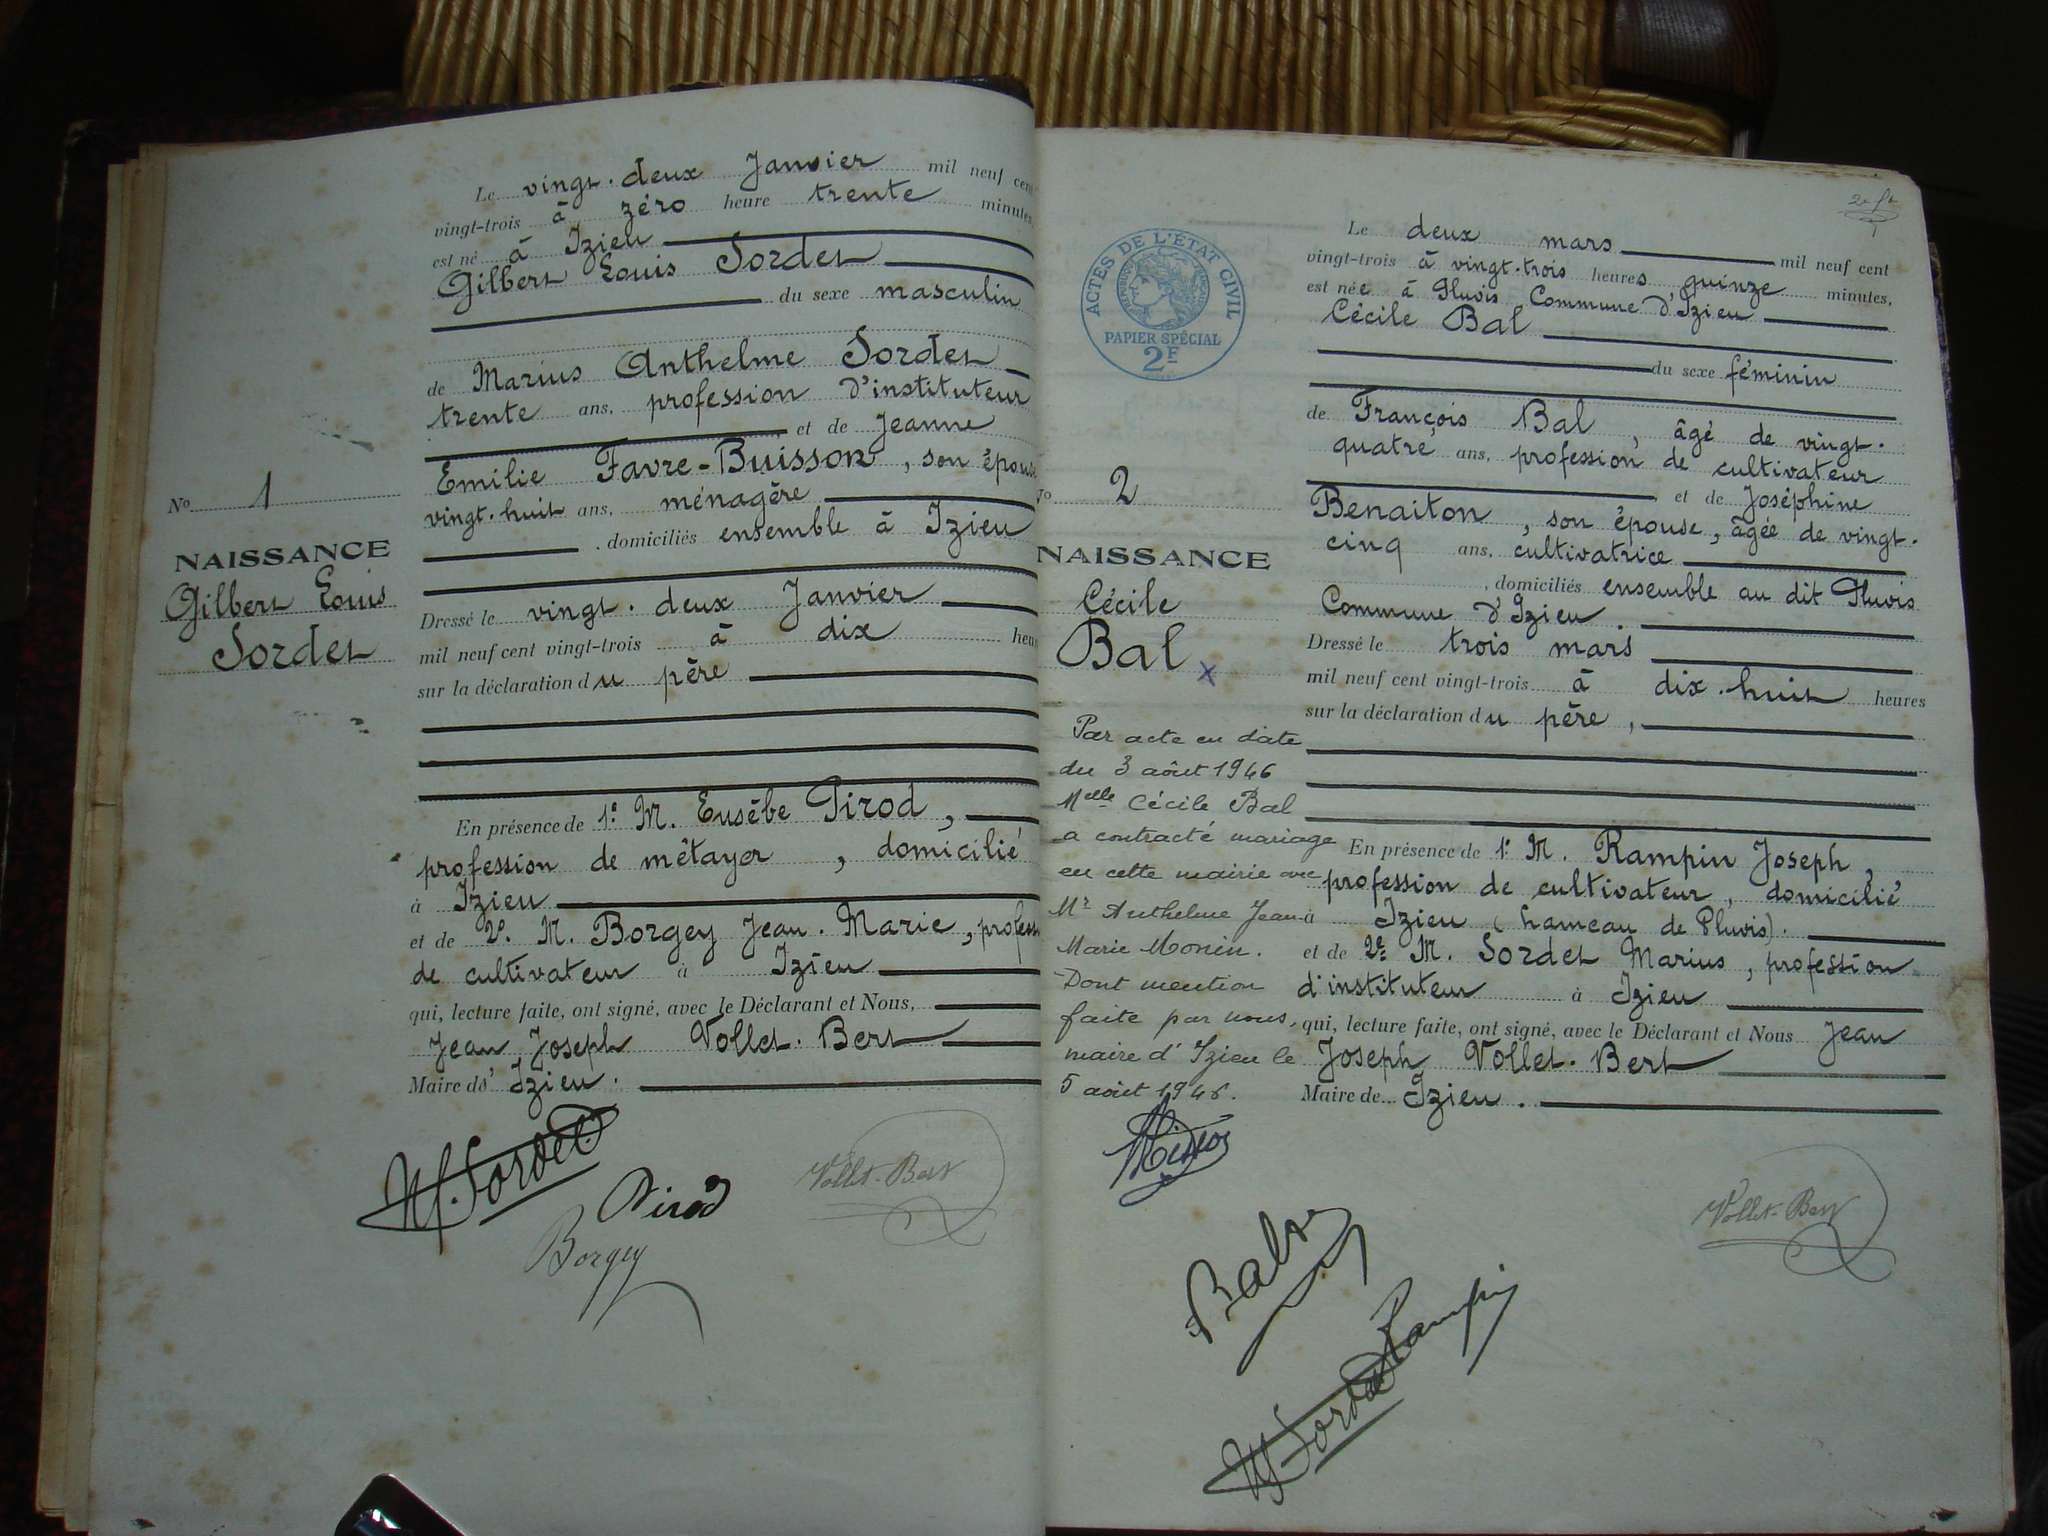 Le vingt-deux Janvier mil neuf cent
vingt-trois à zéro heure trente minutes,
est né à Izieu
Gilbert Louis Sordet
du sexe masculin
de Marius Anthelme Sordet
trente ans, profession d'instituteur
et de Jeanne
Emilie Favre-Buisson, son épouse
vingt-huit ans, ménagère
, domiciliés ensemble à Izieu
No 1
NAISSANCE
Gilbert Louis
Sordet
Dressé le vingt-deux Janvier
mil neuf cent vingt-trois à dix heu
sur la déclaration du père
En présence de 1º M. Eusèbe Pirod,
profession de métayer, domicilié
à Izieu
et de 2º. M. Borgey Jean-Marie, profess
de cultivateur à Izieu
qui, lecture faite, ont signé, avec le Déclarant et Nous,
Jean, Joseph Vollet-Bert
Maire d'Izieu.
M. Sordet
Pirod
Borgey
Vollet-Bert
ACTES DE L'ÉTAT CIVIL
PAPIER SPÉCIAL
2F
Le deux mars mil neuf cent
vingt-trois à vingt-trois heures quinze minutes,
est née à Pluvis Commune d'Izieu
Cécile Bal
du sexe féminin
de François Bal, âgé de vingt-
quatre ans, profession de cultivateur
et de Joséphine
Benaiton, son épouse, âgée de vingt-
cinq ans, cultivatrice
, domiciliés ensemble au dit Pluvis
Commune d'Izieu.
No 2
NAISSANCE
Cécile
Bal x
Dressé le trois mars
mil neuf cent vingt-trois à dix-huit heures
sur la déclaration du père,
Par acte en date
du 3 août 1946
Melle Cécile Bal
a contracté mariage
en cette mairie avec
Mr Anthelme Jean
Marie Monin.
Dont mention
faite par nous,
maire d'Izieu le
5 août 1946.
En présence de 1º M. Rampin Joseph,
profession de cultivateur, domicilié
à Izieu (hameau de Pluvis).
et de 2º M. Sordet Marius, profession
d'instituteur à Izieu
qui, lecture faite, ont signé, avec le Déclarant et Nous Jean
Joseph Vollet-Bert
Maire de Izieu.
Vollet-Bert
Bal
Rampin
M. Sordet